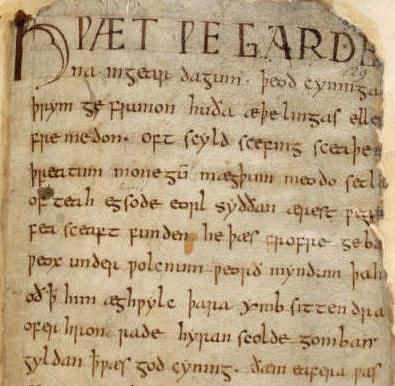 HǷÆT ǷE GARDE
na ingear dagum. þeod cyninga
þrym ge frunon huða æþelingas elle
fremedon. oft scyld scefing sceaþe
þreatum monegū mægþum meodo setla
of teah egsode eorl syððan ærest ƿea
feasceaft funden he þæs frofre geba
ƿeox under ƿolcnum ƿeorð myndum þah
oð þ him æghƿylc þara ymb sittendra
ofer hron rade hyran scolde gomban
gyldan þ ƿæs god cyning. ðæm eafera ƿæs